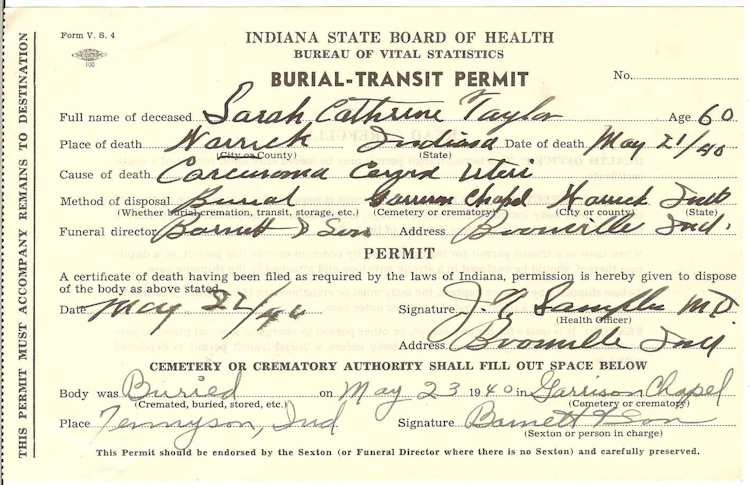 Form V. S. 4
100
INDIANA STATE BOARD OF HEALTH
BUREAU OF VITAL STATISTICS
BURIAL-TRANSIT PERMIT
No.
Full name of deceased Sarah Cathrine Taylor Age 60
Place of death Warrick Indiana Date of death May 21/40
(City or County) (State)
Cause of death Carcinoma Uteri
Method of disposal Burial Garrison Chapel Warrick Ind
(Whether burial, cremation, transit, storage, etc.) (Cemetery or crematory) (City or county) (State)
Funeral director Barnett & Son Address Boonville Ind.
PERMIT
A certificate of death having been filed as required by the laws of Indiana, permission is hereby given to dispose
of the body as above stated.
Date May 22/40 Signature J. M.D.
(Health Officer)
Address Boonville Ind
CEMETERY OR CREMATORY AUTHORITY SHALL FILL OUT SPACE BELOW
Body was Buried on May 23 1940 in Garrison Chapel
(Cremated, buried, stored, etc.) (Cemetery or crematory)
Place Tennyson, Ind Signature Barnett & Son
(Sexton or person in charge)
This Permit should be endorsed by the Sexton (or Funeral Director where there is no Sexton) and carefully preserved.
THIS PERMIT MUST ACCOMPANY REMAINS TO DESTINATION